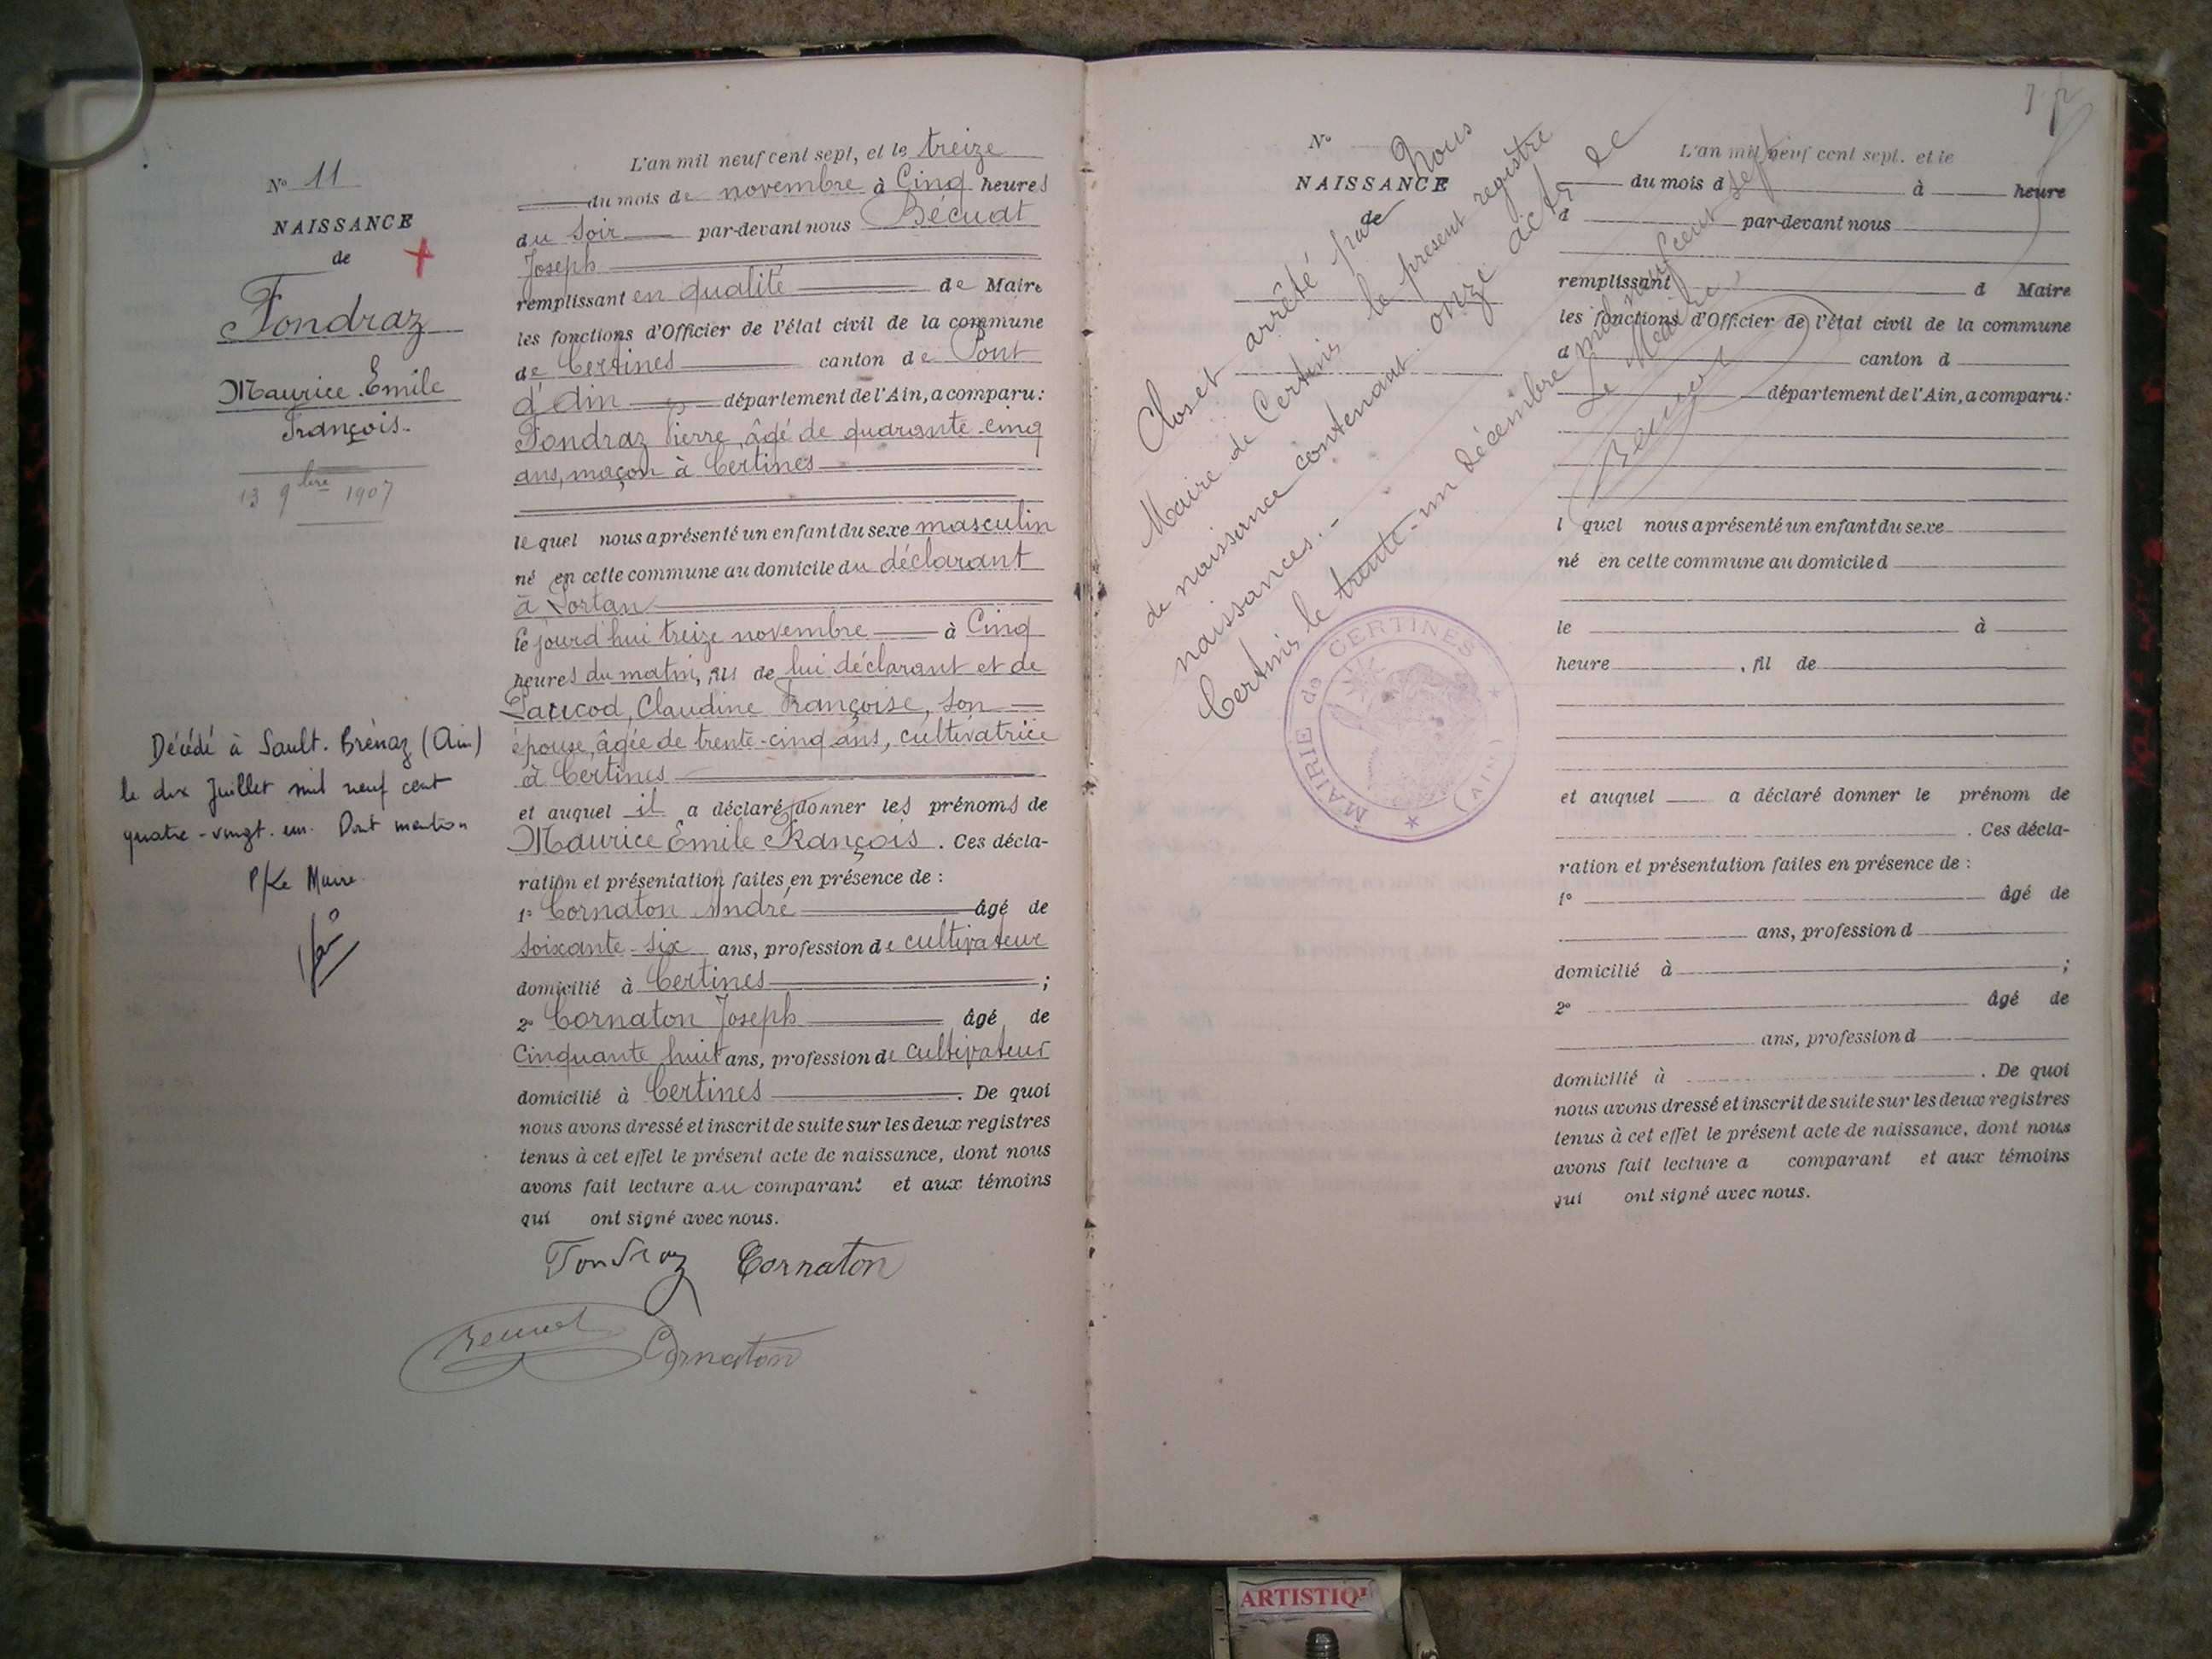 N° 11
NAISSANCE
de
Fondraz
Maurice Emile
François.
13 9bre 1907
Décédé à Sault-Brénaz (Ain)
le dix Juillet mil neuf cent
quatre-vingt-un. Dont mention
P/Le Maire
L'an mil neuf cent sept, et le treize
du mois de novembre à Cinq heures
du soir par-devant nous Bécuat
Joseph
remplissant en qualité de Maire
les fonctions d'Officier de l'état civil de la commune
de Certines canton de Pont
d'Ain département de l'Ain, a comparu:
Fondraz Pierre, âgé de quarante-cinq
ans, maçon à Certines
le quel nous a présenté un enfant du sexe masculin
né en cette commune au domicile du déclarant
à
le jourd'hui treize novembre à Cinq
heures du matin, fils de lui déclarant et de
Paucod, Claudine Françoise, son
épouse, âgée de trente-cinq ans, cultivatrice
à Certines
et auquel il a déclaré donner les prénoms de
Maurice Emile François. Ces décla-
ration et présentation failes en présence de :
1° Cornaton André âgé de
soixante-six ans, profession de cultivateur
domicilié à Certines ;
2° Cornaton Joseph âgé de
Cinquante huit ans, profession de cultivateur
domicilié à Certines . De quoi
nous avons dressé et inscrit de suite sur les deux registres
tenus à cet effet le présent acte de naissance, dont nous
avons fait lecture au comparant et aux témoins
qui ont signé avec nous.
Fondraz Cornaton
Bécuat Cornaton
N°
NAISSANCE
de
Clos et arrêté par Nous
Maire de Certines le présent registre
de naissance contenant onze actes de
naissances.-
Certines le trente-un décembre mil neuf cent sept
Le Maire,
Bécuat
MAIRIE de CERTINES
(AIN)
L'an mil neuf cent sept. et le
du mois d à heure
d par-devant nous
remplissant d Maire
les fonctions d'Officier de l'état civil de la commune
d canton d
département de l'Ain, a comparu:
l quel nous a présenté un enfant du sexe
né en cette commune au domicile d
le à
heure , fil de
et auquel a déclaré donner le prénom de
. Ces décla-
ration et présentation failes en présence de :
1° âgé de
ans, profession d
domicilié à ;
2° âgé de
ans, profession d
domicilié à . De quoi
nous avons dressé et inscrit de suite sur les deux registres
tenus à cet effet le présent acte de naissance, dont nous
avons fait lecture a comparant et aux témoins
qui ont signé avec nous.
ARTISTIQ